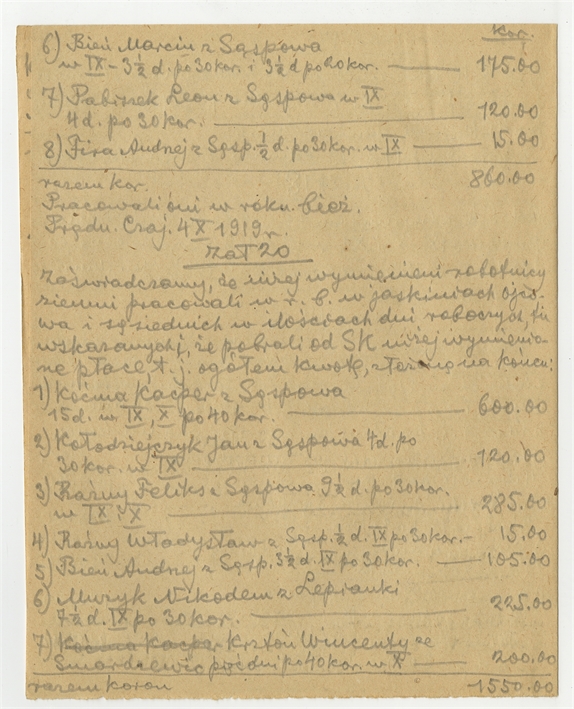 kor.
6) Bień Marcin z Sąspowa
w IX – 3½ d. po 30 kor. i 3½ d po 20 kor. — 175.00
7) Pabisek Leon z Sąspowa w IX
4 d. po 30 kor. — 120.00
8) Fira Andrzej z Sąsp. ½ d. po 30 kor. w IX — 15.00
razem kor. 860.00
Pracowali oni w roku bież.
Prądn. Czaj. 4 X 1919 r.
Zał 20
Zaświadczamy, że niżej wymienieni robotnicy
ziemni pracowali w r. b. w jaskiniach Ojco-
wa i sąsiednich w ilościach dni roboczych, tu
wskazanych i, że pobrali od SK niżej wymienio-
ne płace, t. j. ogółem kwotę, złożoną na końcu:
1) Koźma Kacper z Sąspowa
15 d. w IX, X po 40 kor. — 600.00
2) Kołodziejczyk Jan z Sąspowa 4 d. po
30 kor. w IX — 120.00
3) Raźny Feliks z Sąspowa 9½ d. po 30 kor.
w IX i X — 285.00
4) Raźny Władysław z Sąsp. ½ d. IX po 30 kor. – 15.00
5) Bień Andrzej z Sąsp. 3½ d. IX po 30 kor. — 105.00
6) Muzyk Nikodem z Lepianki
7½ d. IX po 30 kor. — 225.00
7) Koźma Kacper Krztoń Wincenty ze
dni po 40 kor. w X — 200.00
razem koron 1550.00